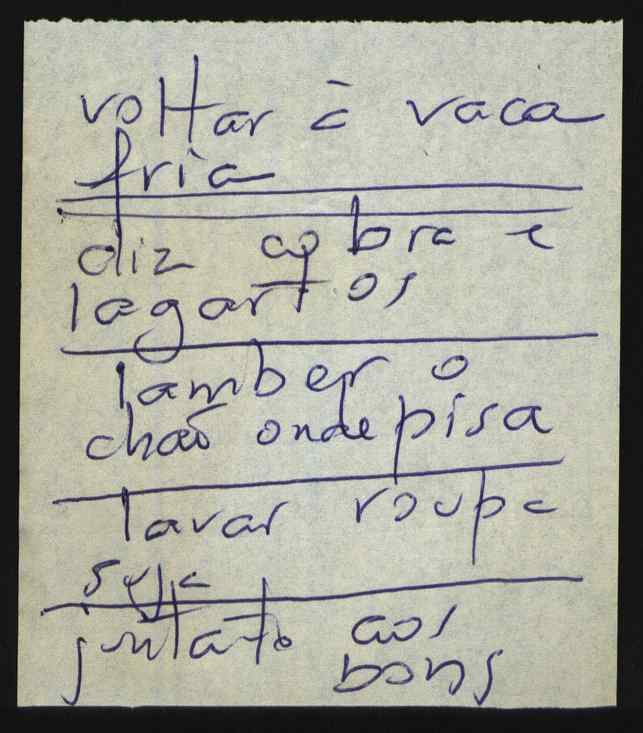 voltar à vaca
fria
diz cobra e
lagartos
lamber o
chão onde pisa
lavar roupa
suja
juntar-se aos
bons